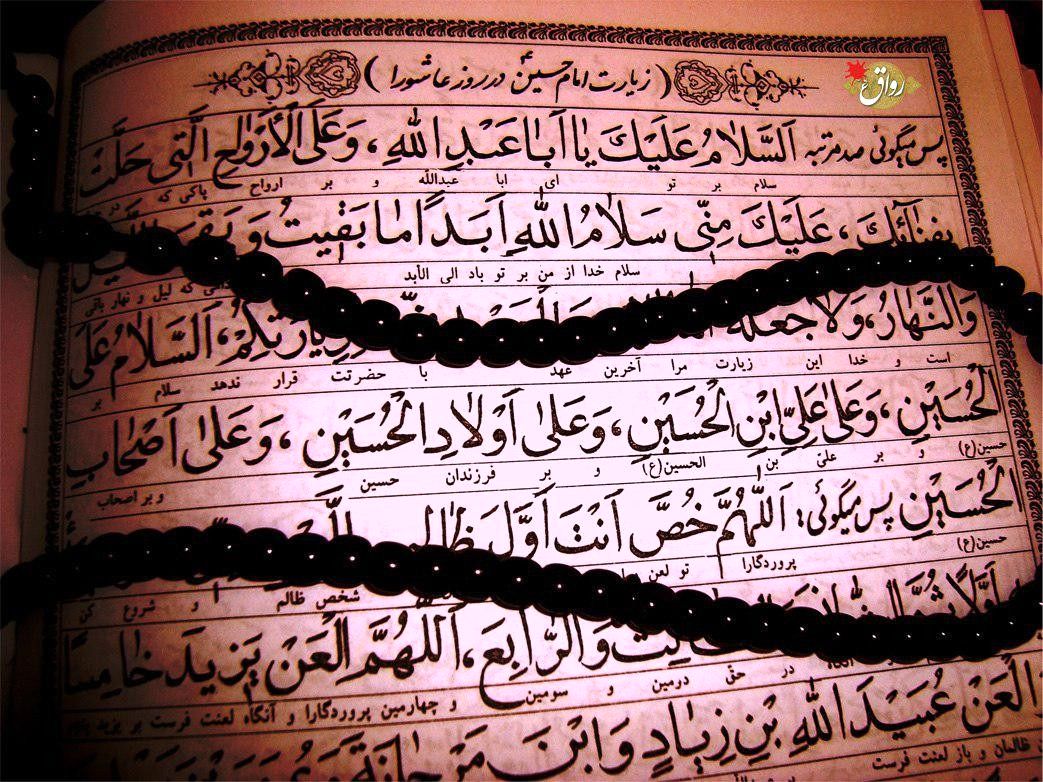 رواق
( زیارت امام حسین ع در روز عاشورا )
پس میگوئی صد مرتبه اَلسَّلامُ عَلَیْكَ یا اَباعَبْدِ اللهِ ، وَعَلَی الْاَرْواحِ الَّتی حَلَّتْ
سلام بر تو ای ابا عبدالله و بر ارواح پاکی که در
بِفِنائِكَ ، عَلَیْكَ مِنّی سَلامُ اللهِ اَبَدًا ما بَقیتُ وَ بَقِیَ
سلام خدا از من بر تو باد الی الأبد که لیل و نهار باقی
وَالنَّهارُ ، وَلا جَعَلَهُ زِیارَتِکُمْ ، اَلسَّلامُ عَلَی
است و خدا این زیارت مرا آخرین عهد با حضرتت قرار ندهد سلام بر
الْحُسَیْنِ ، وَعَلی عَلِیِّ ابْنِ الْحُسَیْنِ ، وَعَلی اَوْلادِ الْحُسَیْنِ ، وَعَلی اَصْحابِ
حسین(ع) و بر علیّ بن الحسین(ع) و بر فرزندان حسین و بر اصحاب
الْحُسَیْنِ پس میگوئی : اَللّهُمَّ خُصَّ اَنْتَ اَوَّلَ ظالِمٍ
حسین(ع) پروردگارا تو لعن شخص ظالم و شروع کن
اَوَّلًا ثُمَّ وَالرّابِعَ ، اَللّهُمَّ الْعَنْ یَزیدَ خامِسًا
در حقّ دومین و سومین و چهارمین پروردگارا و آنگاه لعنت فرست بر یزید پنجم
الْعَنْ عُبَیْدَ اللهِ بْنَ زِیادٍ وَ ابْنَ مَرْجانَةَ
ظالمان و باز لعنت فرست